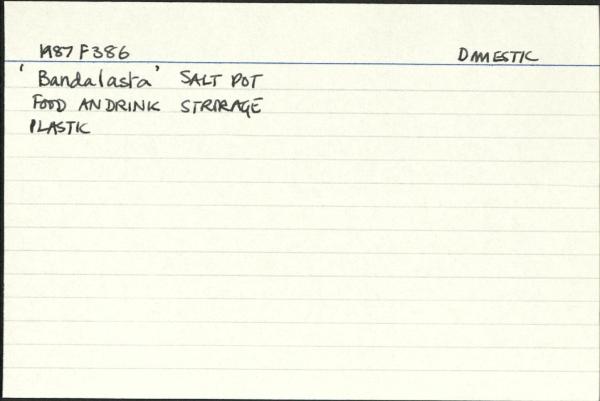 1987 F386 DOMESTIC
'Bandalasta' SALT POT
FOOD AN DRINK STRORAGE
PLASTIC